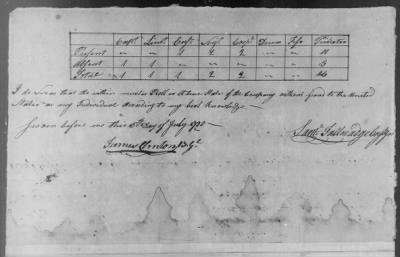 Capt Lieut Ensn Sergt Corpl Drum Fife Privates
Present „ „ 1 2 2 „ „ 11
Absent 1 1 „ „ „ „ „ 3
Total 1 1 1 2 2 „ „ 14
I do Swear that the within muster Roll is A true State of the Company without fraud to the United
States or any Individual According to my best knowledge –
Sworn before me this 5th Day of July 1778
Saml Tallmadge
James Clinton B. Gl